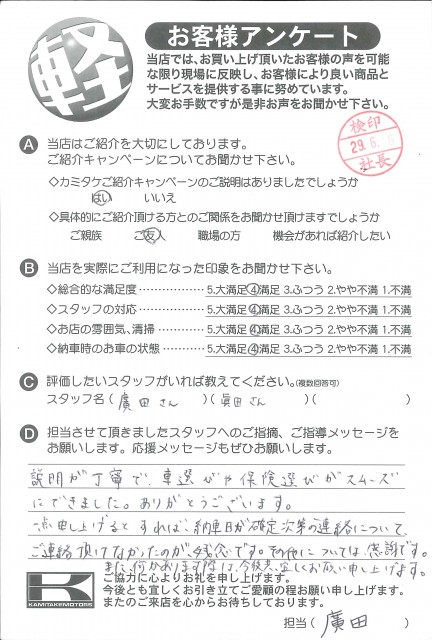 軽
お客様アンケート
当店では、お買い上げ頂いたお客様の声を可能
な限り現場に反映し、お客様により良い商品と
サービスを提供する事に努めています。
大変お手数ですが是非お声をお聞かせ下さい。
検印
29.6.
社長
A 当店はご紹介を大切にしております。
ご紹介キャンペーンについてお聞かせ下さい。
◇カミタケご紹介キャンペーンのご説明はありましたでしょうか
はい いいえ
◇具体的にご紹介頂ける方とのご関係をお聞かせ頂けますでしょうか
ご親族 ご友人 職場の方 機会があれば紹介したい
B 当店を実際にご利用になった印象をお聞かせ下さい。
◇総合的な満足度……………5.大満足 4.満足 3.ふつう 2.やや不満 1.不満
◇スタッフの対応……………5.大満足 4.満足 3.ふつう 2.やや不満 1.不満
◇お店の雰囲気、清掃…………5.大満足 4.満足 3.ふつう 2.やや不満 1.不満
◇納車時のお車の状態…………5.大満足 4.満足 3.ふつう 2.やや不満 1.不満
C 評価したいスタッフがいれば教えてください。(複数回答可)
スタッフ名(廣田さん)(眞田さん)( )
D 担当させて頂きましたスタッフへのご指摘、ご指導メッセージを
お願いします。応援メッセージもぜひお願いします。
説明が丁寧で、車選びや保険選びがスムーズ
にできました。ありがとうございます。
一点申し上げるとすれば、納車日が確定次第の連絡について、
ご連絡頂けなかったのが残念です。その他については感謝です。
また、何かあります際は、今後共、宜しくお願い申し上げます。
K
KAMITAKEMOTORS
ご協力に心よりお礼を申し上げます。
今後とも宜しくお引き立てご愛顧の程お願い申し上げます。
またのご来店を心からお待ちしております。
担当(廣田)